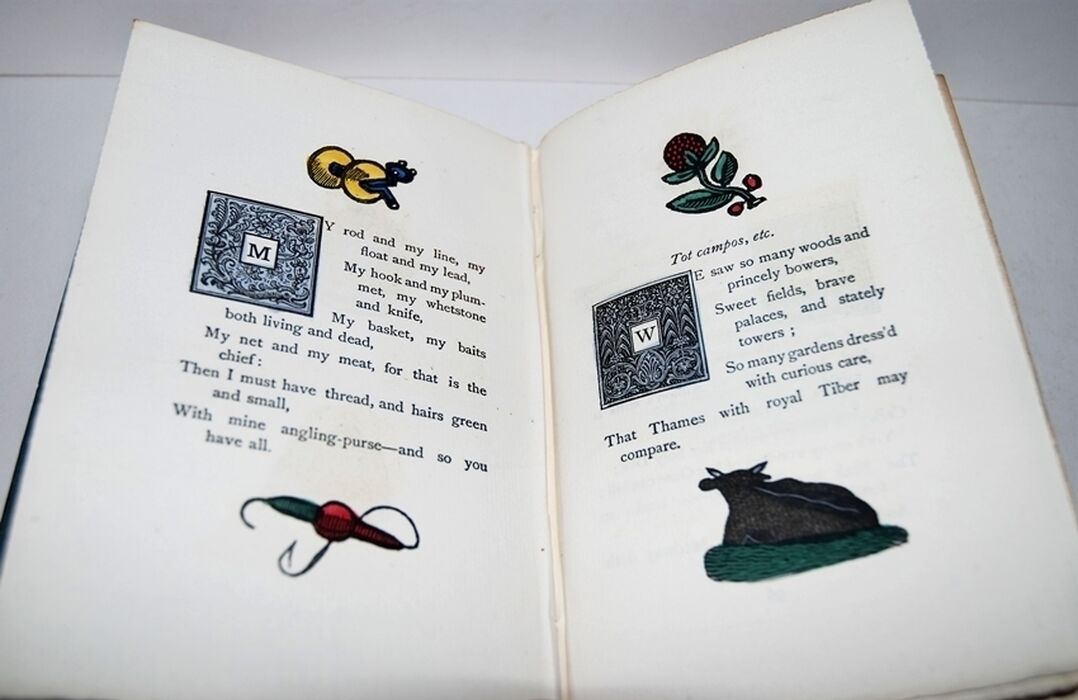 MY rod and my line, my
float and my lead,
My hook and my plum-
met, my whetstone
and knife,
My basket, my baits
both living and dead,
My net and my meat, for that is the
chief:
Then I must have thread, and hairs green
and small,
With mine angling-purse—and so you
have all.
Tot campos, etc.
WE saw so many woods and
princely bowers,
Sweet fields, brave
palaces, and stately
towers ;
So many gardens dress'd
with curious care,
That Thames with royal Tiber may
compare.